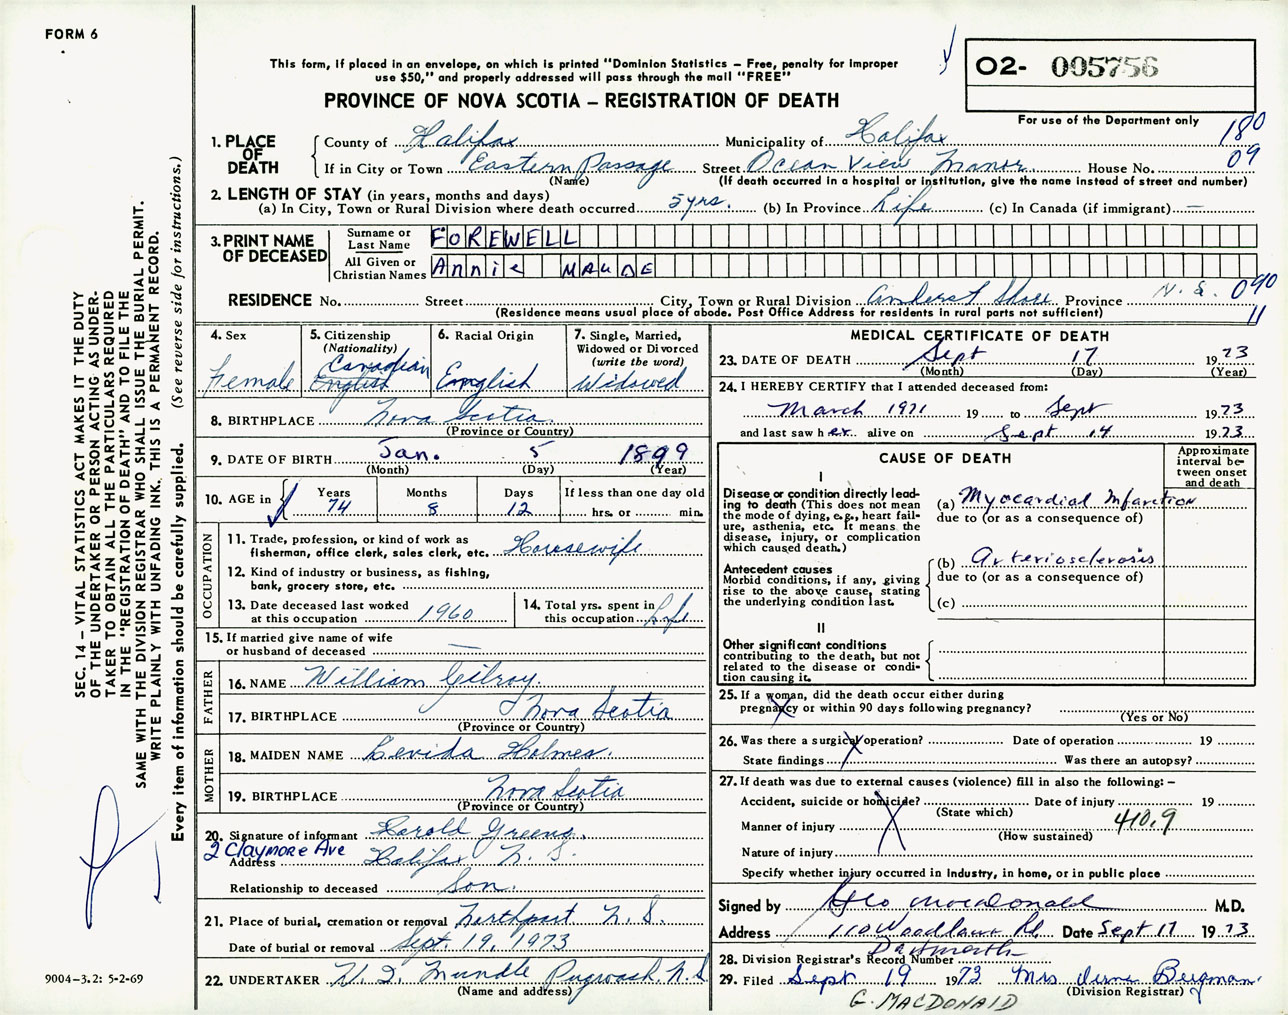 FORM 6
This form, if placed in an envelope, on which is printed "Dominion Statistics – Free, penalty for improper
use $50," and properly addressed will pass through the mail "FREE"
PROVINCE OF NOVA SCOTIA – REGISTRATION OF DEATH
O2- 005756
For use of the Department only
180
09
1. PLACE OF DEATH
County of Halifax Municipality of Halifax
If in City or Town Eastern Passage Street Ocean View Manor House No.
(Name) (If death occurred in a hospital or institution, give the name instead of street and number)
2. LENGTH OF STAY (in years, months and days)
(a) In City, Town or Rural Division where death occurred 5 yrs. (b) In Province Life (c) In Canada (if immigrant) —
3. PRINT NAME OF DECEASED
Surname or Last Name FOREWELL
All Given or Christian Names Annie MAUDE
RESIDENCE No. Street City, Town or Rural Division Amherst Shore Province N.S. 090
(Residence means usual place of abode. Post Office Address for residents in rural parts not sufficient) 11
4. Sex
Female
5. Citizenship
(Nationality)
Canadian
English
6. Racial Origin
English
7. Single, Married,
Widowed or Divorced
(write the word)
Widowed
8. BIRTHPLACE Nova Scotia
(Province or Country)
9. DATE OF BIRTH Jan. 5 1899
(Month) (Day) (Year)
10. AGE in Years Months Days If less than one day old
74 8 12 hrs. or min.
OCCUPATION
11. Trade, profession, or kind of work as
fisherman, office clerk, sales clerk, etc. Housewife
12. Kind of industry or business, as fishing,
bank, grocery store, etc.
13. Date deceased last worked
at this occupation 1960
14. Total yrs. spent in
this occupation Life
15. If married give name of wife
or husband of deceased —
FATHER
16. NAME William Gilroy.
17. BIRTHPLACE Nova Scotia
(Province or Country)
MOTHER
18. MAIDEN NAME Levida Holmes.
19. BIRTHPLACE Nova Scotia
(Province or Country)
20. Signature of informant Harold Greeno.
2 Claymore Ave
Address Halifax N. S.
Relationship to deceased Son.
21. Place of burial, cremation or removal Northport N. S.
Date of burial or removal Sept. 19, 1973
22. UNDERTAKER Mundle Pugwash N.S
(Name and address)
MEDICAL CERTIFICATE OF DEATH
23. DATE OF DEATH Sept 17 1973
(Month) (Day) (Year)
24. I HEREBY CERTIFY that I attended deceased from:
March 1971 19 to Sept 1973
and last saw her alive on Sept 14 1973
CAUSE OF DEATH
Approximate
interval be-
tween onset
and death
I
Disease or condition directly lead-
ing to death (This does not
mean the mode of dying, e.g., heart fail-
ure, asthenia, etc. It means the
disease, injury, or complication
which caused death.)
(a) Myocardial Infarction
due to (or as a consequence of)
Antecedent causes
Morbid conditions, if any, giving
rise to the above cause, stating
the underlying condition last.
(b) Arteriosclerosis
due to (or as a consequence of)
(c)
II
Other significant conditions
contributing to the death, but not
related to the disease or condi-
tion causing it.
25. If a woman, did the death occur either during
pregnancy or within 90 days following pregnancy?
(Yes or No)
26. Was there a surgical operation? Date of operation 19
State findings Was there an autopsy?
27. If death was due to external causes (violence) fill in also the following: –
Accident, suicide or homicide? Date of injury 19
(State which)
Manner of injury 410.9
(How sustained)
Nature of injury
Specify whether injury occurred in industry, in home, or in public place
Signed by Geo MacDonald M.D.
Address 110 Woodlawn Rd Date Sept 17 1973
Dartmouth
28. Division Registrar's Record Number
29. Filed Sept 19 1973 Mrs Irene Bergman
(Division Registrar)
G. MACDONAID
SEC. 14 – VITAL STATISTICS ACT MAKES IT THE DUTY
OF THE UNDERTAKER OR PERSON ACTING AS UNDER-
TAKER TO OBTAIN ALL THE PARTICULARS REQUIRED
IN THE "REGISTRATION OF DEATH" AND TO FILE THE
SAME WITH THE DIVISION REGISTRAR WHO SHALL ISSUE THE BURIAL PERMIT.
WRITE PLAINLY WITH UNFADING INK. THIS IS A PERMANENT RECORD.
Every item of information should be carefully supplied. (See reverse side for instructions.)
9004-3.2: 5-2-69